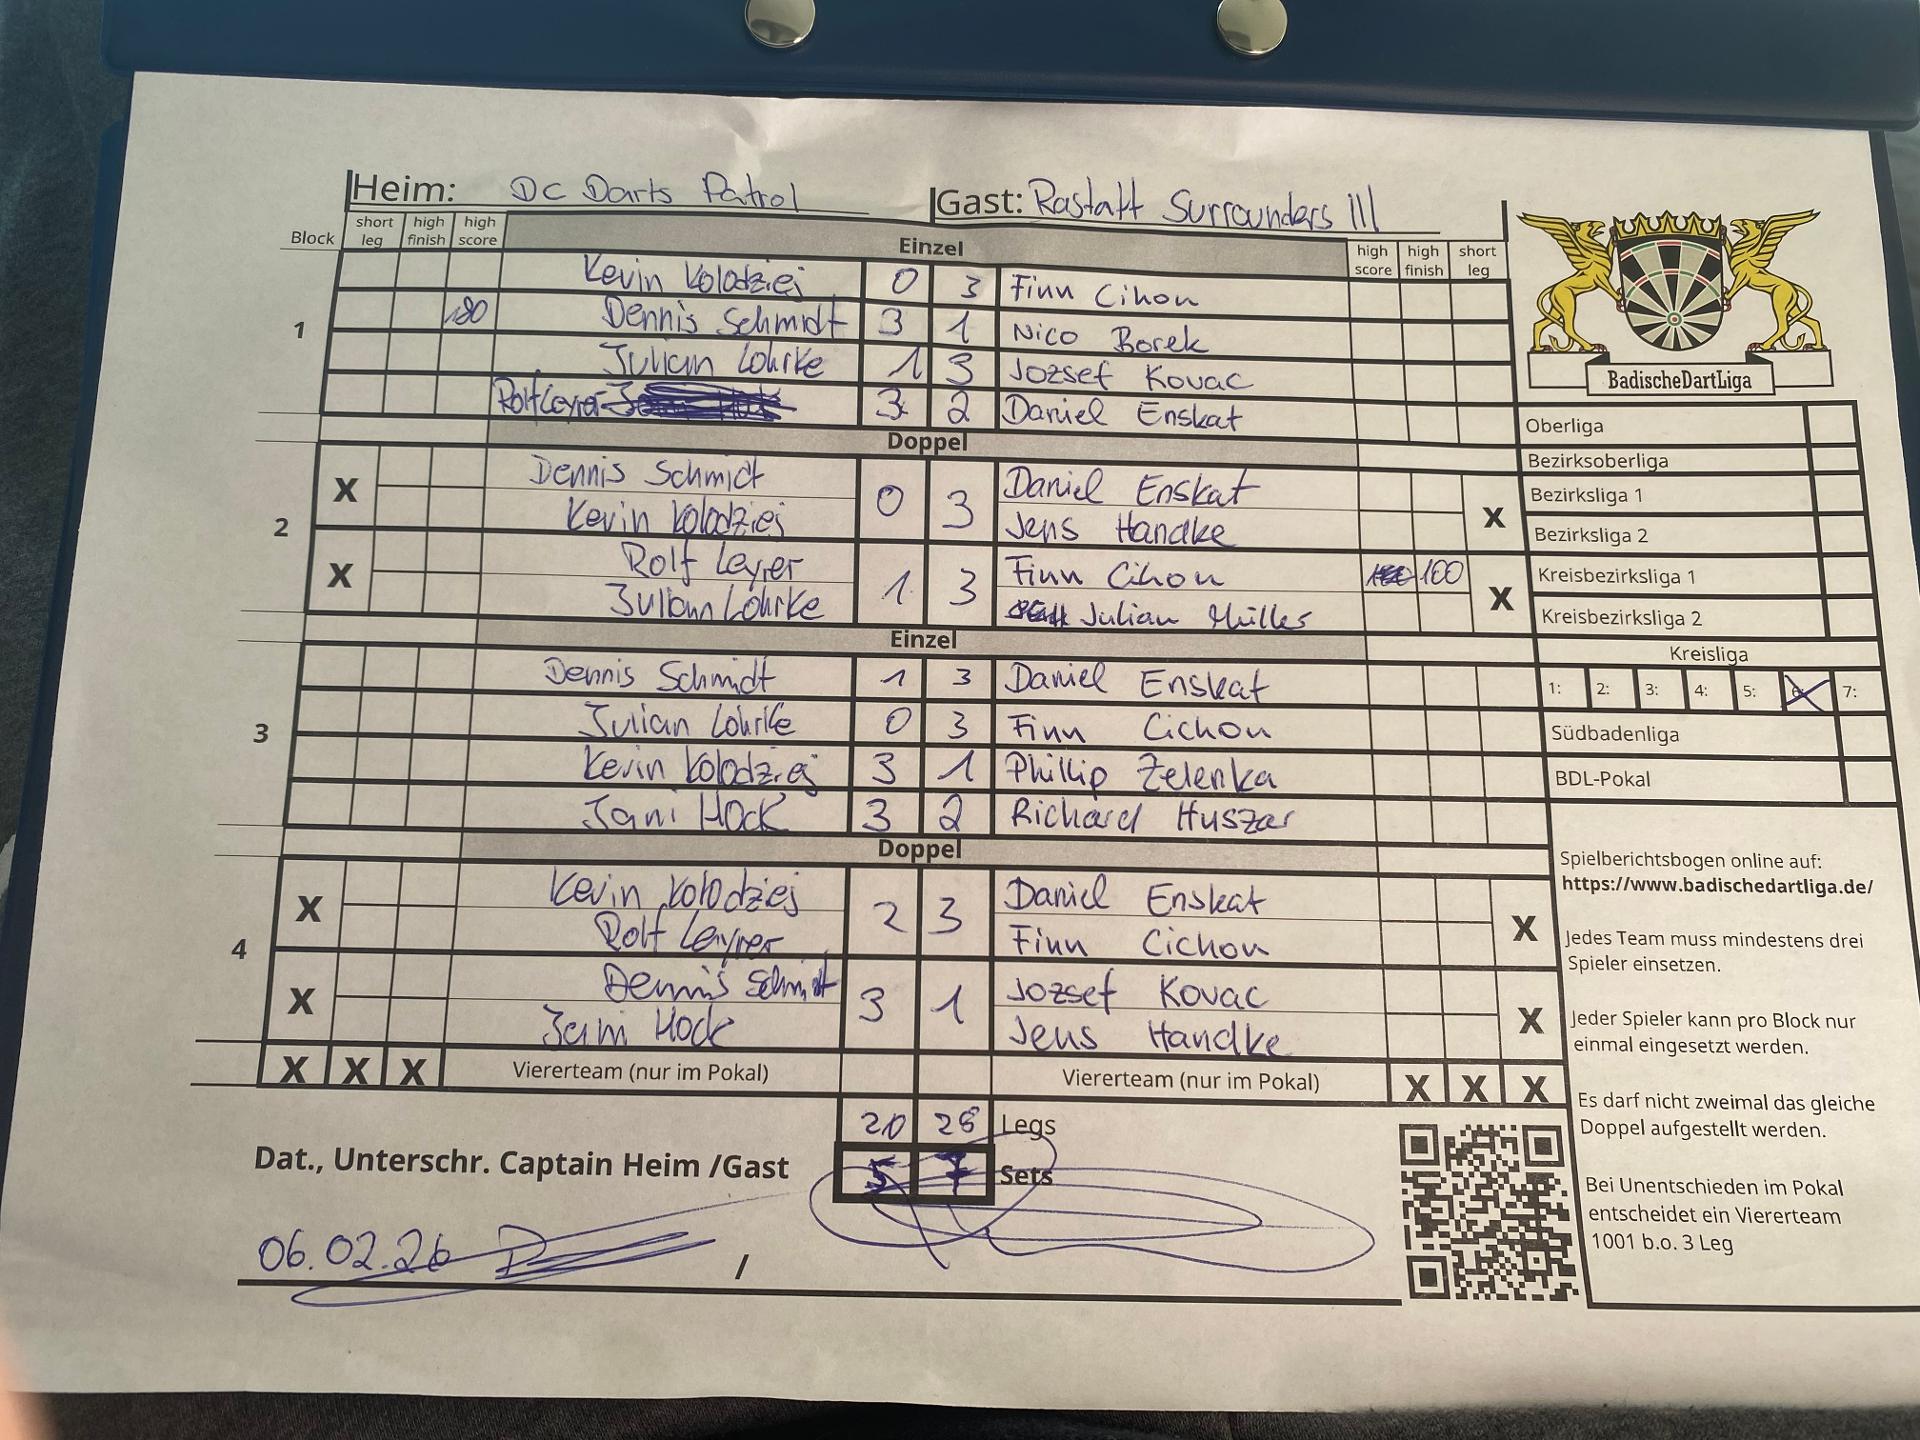 Heim: DC Darts Patrol Gast: Rastatt Surrounders III
Block short leg high finish high score Einzel high score high finish short leg
1
Kevin Kolodziej 0 3 Finn Cihon
180 Dennis Schmidt 3 1 Nico Borek
Julian Lohrke 1 3 Jozsef Kovac
Rolf Leyrer 3 2 Daniel Enskat
Doppel
2
X Dennis Schmidt 0 3 Daniel Enskat X
Kevin Kolodziej Jens Handke
X Rolf Leyrer 1 3 Finn Cihon 100 X
Julian Lohrke Julian Müller
Einzel
3
Dennis Schmidt 1 3 Daniel Enskat
Julian Lohrke 0 3 Finn Cichon
Kevin Kolodziej 3 1 Phillip Zelenka
Jani Hock 3 2 Richard Huszar
Doppel
4
X Kevin Kolodziej 2 3 Daniel Enskat X
Rolf Leyrer Finn Cichon
X Dennis Schmidt 3 1 Jozsef Kovac X
Jani Hock Jens Handke
X X X Viererteam (nur im Pokal) Viererteam (nur im Pokal) X X X
20 28 Legs
Dat., Unterschr. Captain Heim /Gast 5 7 Sets
06.02.26 /
BadischeDartLiga
Oberliga
Bezirksoberliga
Bezirksliga 1
Bezirksliga 2
Kreisbezirksliga 1
Kreisbezirksliga 2
Kreisliga
1: 2: 3: 4: 5: 6: 7:
Südbadenliga
BDL-Pokal
Spielberichtsbogen online auf:
https://www.badischedartliga.de/
Jedes Team muss mindestens drei
Spieler einsetzen.
Jeder Spieler kann pro Block nur
einmal eingesetzt werden.
Es darf nicht zweimal das gleiche
Doppel aufgestellt werden.
Bei Unentschieden im Pokal
entscheidet ein Viererteam
1001 b.o. 3 Leg